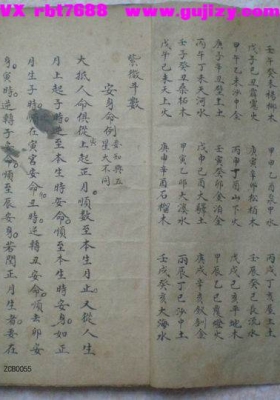 VX rbt7688 www.gujizy.com
壬午癸未楊柳木 甲申乙酉泉中水 丙戌丁亥屋上土
戊子己丑霹靂火 庚寅辛卯松柏木 壬辰癸巳長流水
甲午乙未沙中金 丙申丁酉山下火 戊戌己亥平地木
庚子辛丑壁上土 壬寅癸卯金箔金 甲辰乙巳覆燈火
丙午丁未天河水 戊申己酉大驛土 庚戌辛亥釵釧金
壬子癸丑桑柘木 甲寅乙卯大溪水 丙辰丁巳沙中土
戊午己未天上火 庚申辛酉石榴木 壬戌癸亥大海水
紫微斗數
安身命例 安知與五星大不同
大抵人命俱從上起正月順數至本生月止又從人生
月上起子時逆至本生時安命順至本生時安身如正
月生子時就在寅宮安命丑時逆轉丑安命順去卯安
身寅時逆轉子安命順至辰安身若閏正月生者要在
2C80055